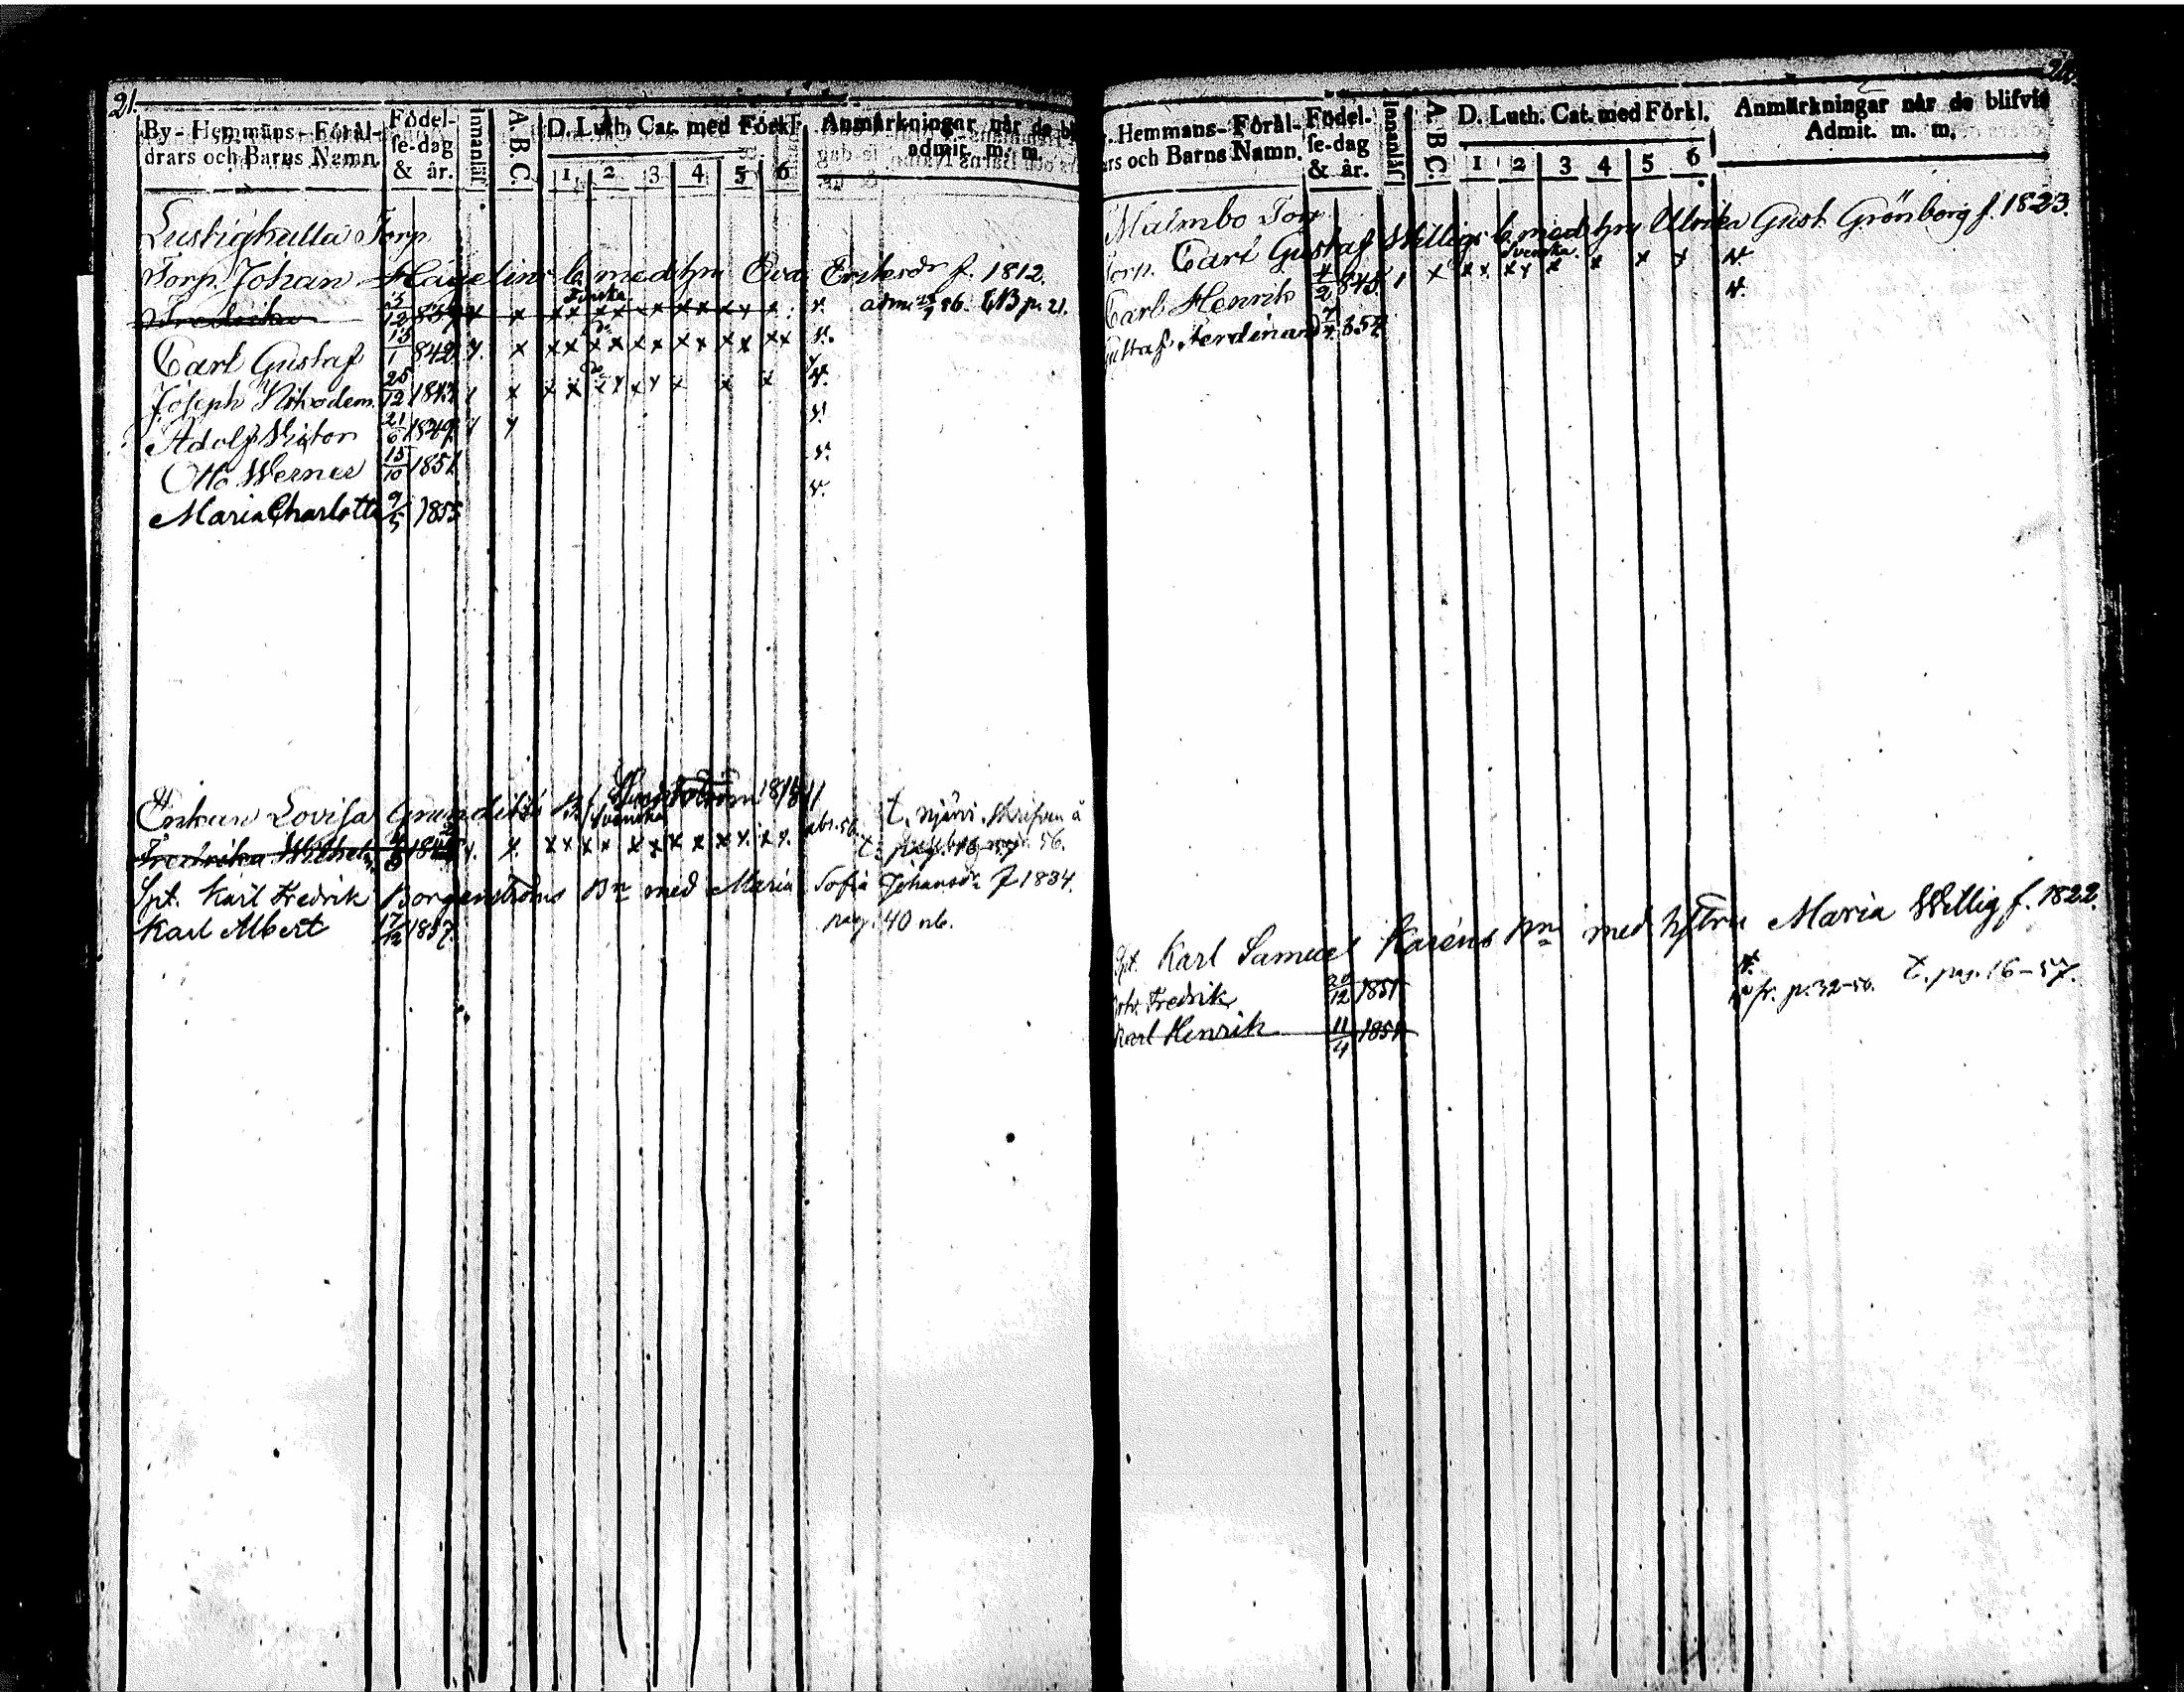 21.
By- Hemmans- Föräl-
drars och Barns Namn.
Födel-
se-dag
& år.
Innanläs.
A. B. C.
D. Luth. Cat. med Förkl.
1 2 3 4 5 6
Anmärkningar når de bl
admit. m. m.
Lustighulla Torp
Torp. Johan Hagelins b. med hru Eva Eriksdr f. 1812.
Fredrika 5/12 839 x x Finska x x x x x x x x x v. adm. 56. CB p. 21.
Carl Gustaf 13/1 842. x x x x x x x x x x x x x v.
Joseph Nikodem. 25/12 1843 x x x x x x x x x x v.
Adolf Victor 21/6 1849 v.
Otto Werner 15/10 1851 v.
Maria Charlotta 9/5 1855 v.
Enkan Lovisa Grundels
Svenska
Fredrika Wilhelm. t. pag. 16-57
Spt. Karl Fredrik Borgenströms Bn med Maria Sofia Johansdr f 1834.
Karl Albert 17/12 1857. pag. 40 nb.
. Hemmans- Föräl-
rs och Barns Namn.
Födel-
se-dag
& år.
Innanläs
A. B. C.
D. Luth. Cat. med Förkl.
1 2 3 4 5 6
Anmärkningar når de blifvit
Admit. m. m.
Malmbo Torp
Torp. Carl Gustaf Willigs b. med hru Ulrika Gust. Grönborg f. 1823.
Svenska.
Carl Henrik 4/2 848. x x x x x x x x x v.
Gustaf Ferdinand 854 v.
Spt. Karl Samuel Karéns Bn med hustru Maria Willig f. 1822.
Joh. Fredrik 28/12 1851 v.
Karl Henrik 11/4 1851 fr. p. 32-50. t. pag. 16-57.